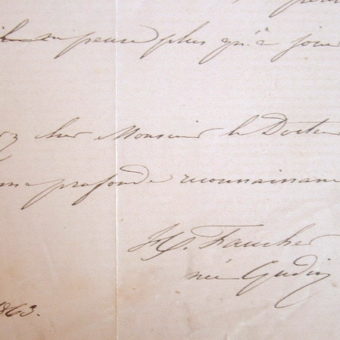 ne pense plus qu'à joui
cher Monsieur le Docteu
ma profonde reconnaissanc
Faucher
née Gudin
1863.